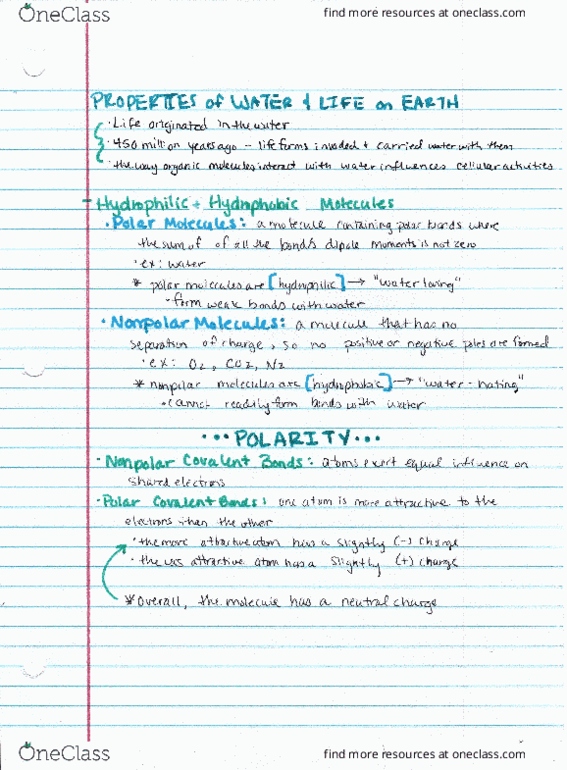 OneClass find more resources at oneclass.com
PROPERTIES of WATER & LIFE on EARTH
· Life originated in the water
· 450 million years ago - life forms invaded + carried water with them
· the way organic molecules interact with water influences cellular activities
- Hydrophilic + Hydrophobic Molecules
· Polar Molecules: a molecule containing polar bonds where
the sum of of all the bond's dipole moments is not zero
· ex: water
* polar molecules are [hydrophilic] → "water loving"
· form weak bonds with water
· Nonpolar Molecules: a molecule that has no
separation of charge, so no positive or negative poles are formed
· ex: O2, CO2, N2
* nonpolar molecules are [hydrophobic] → "water-hating"
· cannot readily form bonds with water
...POLARITY...
· Nonpolar Covalent Bonds: atoms exert equal influence on
shared electrons
· Polar Covalent Bonds: one atom is more attractive to the
electrons than the other
· the more attractive atom has a slightly (-) charge
· the less attractive atom has a slightly (+) charge
* Overall, the molecule has a neutral charge
OneClass find more resources at oneclass.com